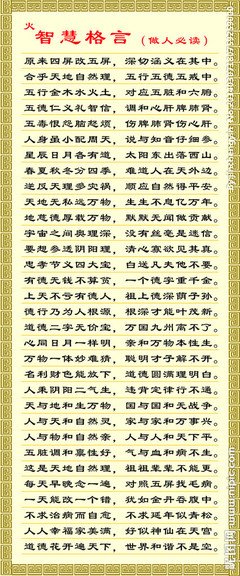 火
智慧格言（做人必读）
原来四屏改五屏，深切涵义在其中。
合乎天地自然理，五行五德五戒中。
五行金木水火土，对应五脏和六腑。
五德仁义礼智信，调和心肝脾肺肾。
五毒恨怨恼怒烦，伤脾肺肾伤心肝。
人身虽小配周天，说与知音仔细参。
星辰日月各有道，太阳东出落西山。
春夏秋冬分四季，难道人在天外边。
逆反天理多灾祸，顺应自然得平安。
天地无私远万物，生生不息亿万年。
地志德厚载万物，默默无闻做贡献。
宇宙之间奥理深，没有丝毫是迷信。
要想参透阴阳理，清心寡欲见其真。
忠孝节义四大宝，白送凡夫他不要。
有德无钱不算贫，一个德字重千金。
上天不亏有德人，祖上德深荫子孙。
德行乃为人根源，根深才能叶茂新。
道德二字无价宝，万国九州离不了。
心照日月一样明，亲和万物本性生。
万物一体妙难猜，聪明才子解不开。
名利财色能放下，道德圆满理明白。
人秉阴阳二气生，违背定律行不通。
天与地和生万物，国与国和无战争。
人与天和自然灵，家与家和万事兴。
人与物和自然亲，人与人和天下平。
五脏调和禀性好，气与血和病不生。
这是天地自然理，祖祖辈辈不能更。
每天早晚念一遍，对照五屏找毛病。
一天能改一个错，犹如金丹吞腹中。
不求治病而自愈，不求延年似青松。
人人幸福家美满，好似神仙在天宫。
道德花开遍天下，世界和谐不是空。